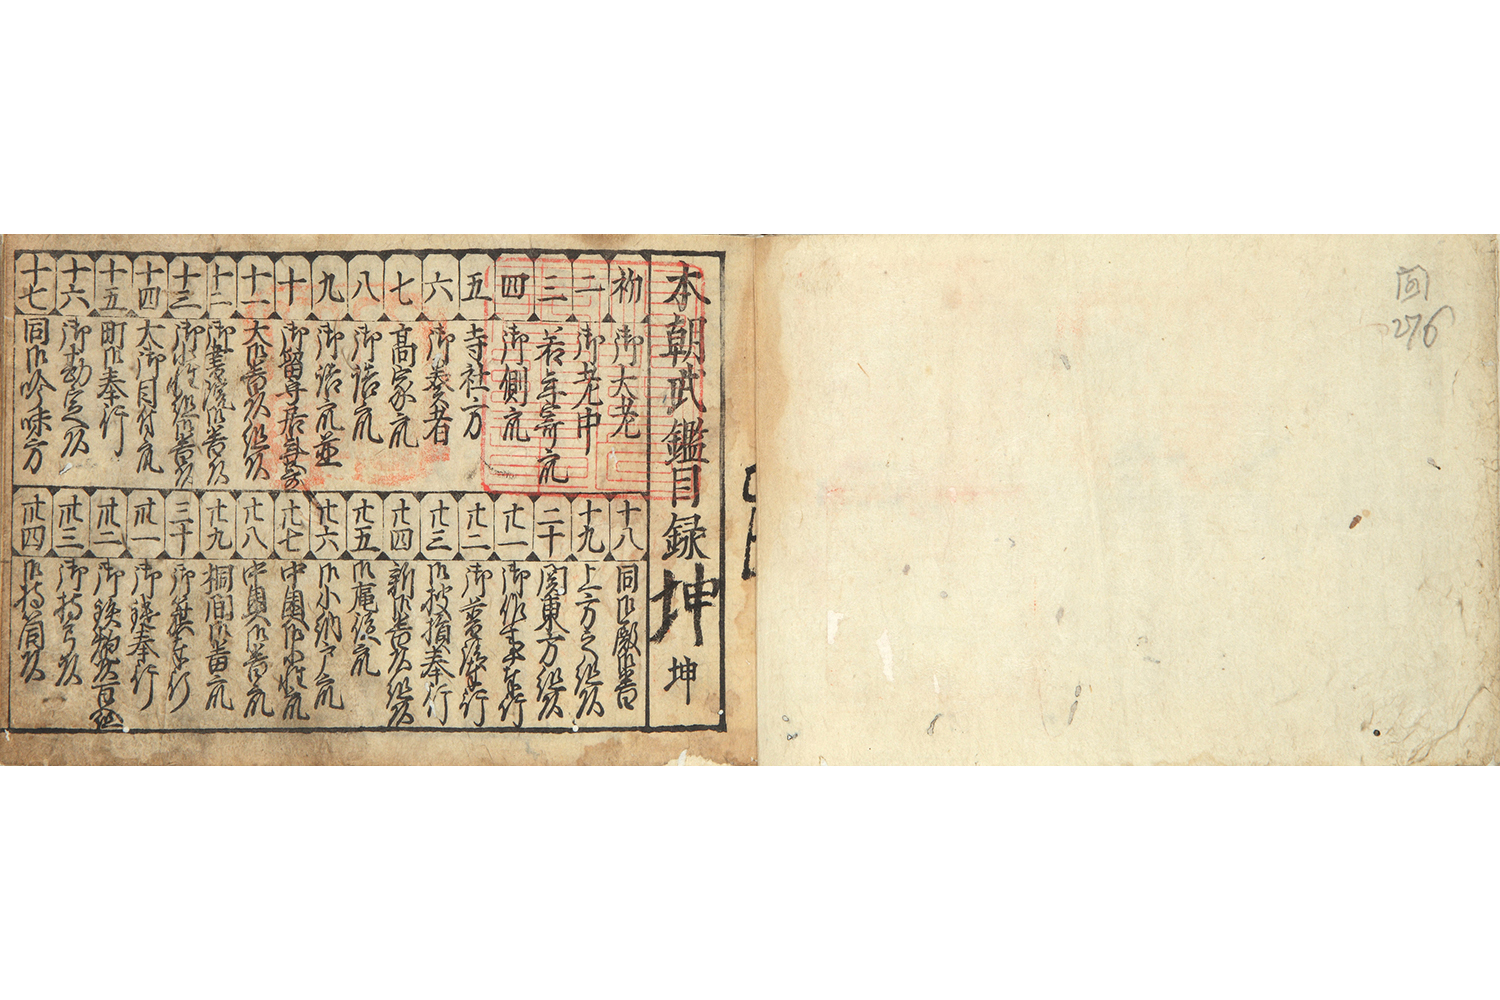 同
276
本朝武鑑目録 坤 坤
初 御大老
二 御老中
三 若年寄衆
四 御側衆
五 寺社方
六 御奏者
七 高家衆
八 御詰衆
九 御詰衆並
十 御留守居年寄
十一 大御番頭組頭
十二 御書院御番頭
十三 御小性組御番頭
十四 大御目付衆
十五 町御奉行
十六 御勘定頭
十七 同御吟味方
十八 同御殿番
十九 上方之組頭
二十 関東方組頭
廿一 御作事奉行
廿二 御普請奉行
廿三 御破損奉行
廿四 新御番頭組頭
廿五 御庵従衆
廿六 御小納戸衆
廿七 中奥御小性衆
廿八 中奥御番衆
廿九 桐間御番衆
三十 御旗奉行
卅一 御鑓奉行
卅二 御鉄炮頭百組
卅三 御持弓頭
卅四 御持筒頭